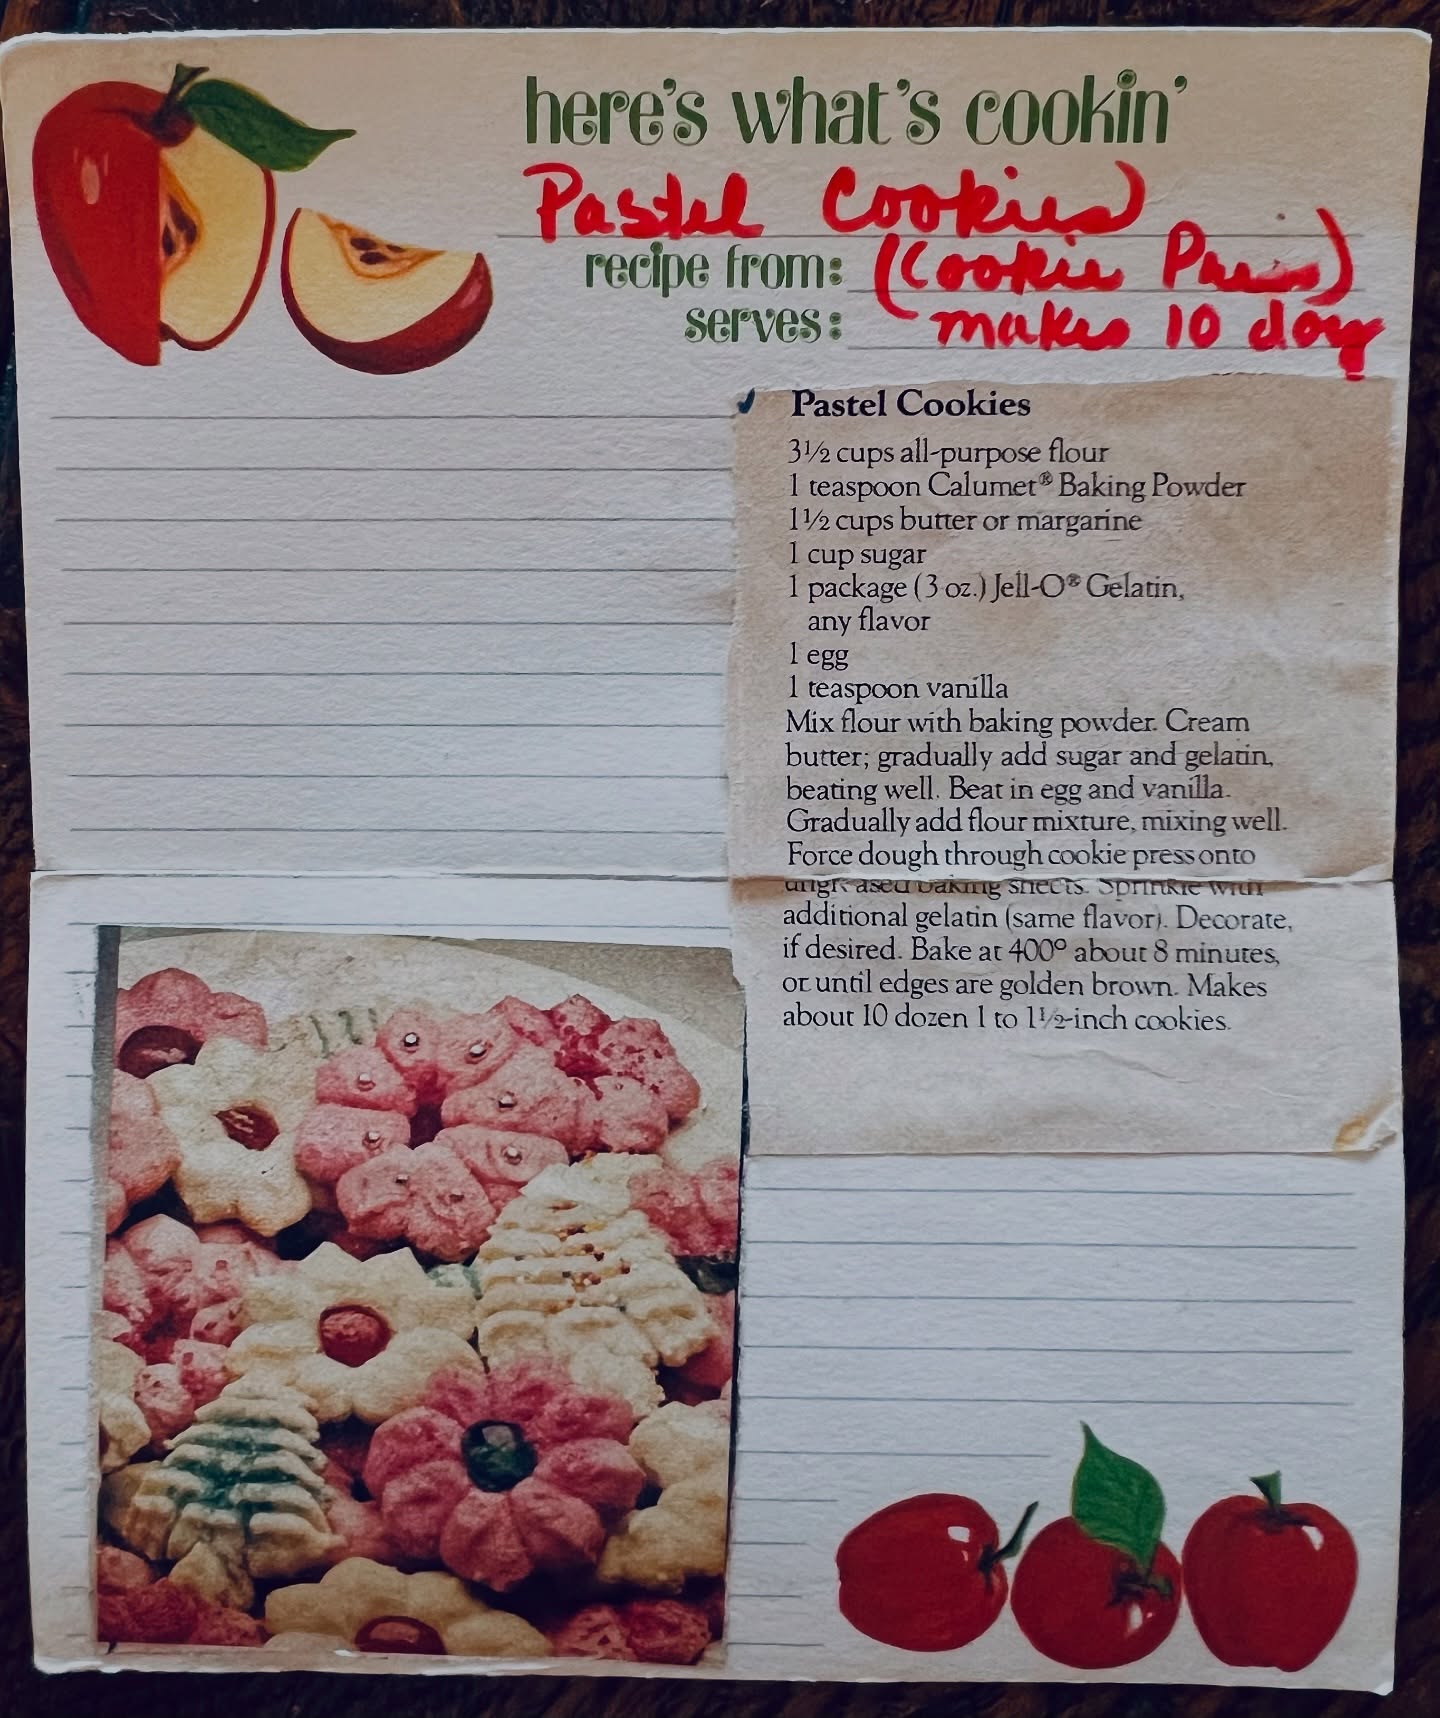 here's what's cookin'
Pastel Cookies
recipe from: (Cookie Press)
serves: makes 10 doz
Pastel Cookies
3½ cups all-purpose flour
1 teaspoon Calumet® Baking Powder
1½ cups butter or margarine
1 cup sugar
1 package (3 oz.) Jell-O® Gelatin,
any flavor
1 egg
1 teaspoon vanilla
Mix flour with baking powder. Cream
butter; gradually add sugar and gelatin,
beating well. Beat in egg and vanilla.
Gradually add flour mixture, mixing well.
Force dough through cookie press onto
ungreased baking sheets. Sprinkle with
additional gelatin (same flavor). Decorate,
if desired. Bake at 400° about 8 minutes,
or until edges are golden brown. Makes
about 10 dozen 1 to 1½-inch cookies.